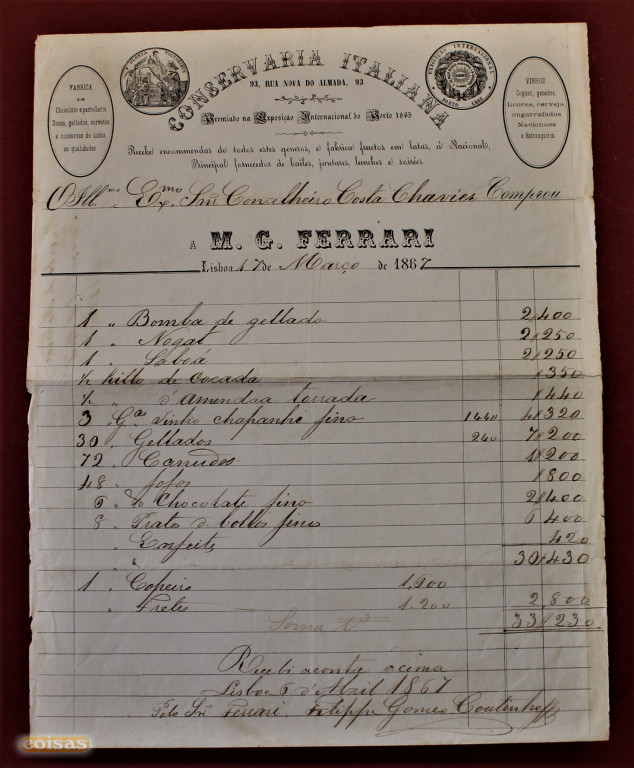 FABRICA
DE
Chocolate epastellaria
Doces, gellados, sorvetes
e conservas de todas
as qualidades
CONSERVARIA ITALIANA
93, RUA NOVA DO ALMADA, 93
Premiado na Exposição Internacional do Porto 1865
EXPOSIÇÃO INTERNACIONAL
PORTO 1865
VINHOS
Cognac, genebra,
licores, cerveja,
engarrafados
Nacionaes
e Estrangeiros
Recebe encommendas de todos estes generos, e fabríca fructas em latas, á Nacional,
Principal fornecedor de bailes, jantares, lunches e soirées.
O Illmo Exmo Snr Concelheiro Costa Chavier Comprou
A M. G. FERRARI
Lisboa 17 de Março de 1867
1 " Bomba de gellado 2$400
1 " Nogat 2$250
1 " Saboá 2$250
½ killo de cocada $350
½ " d'Amendaa torrada $440
3 Gas Vinho chapanhe fino 1440 4$320
30 " Gellados 240 7$200
72 " Canudos 1$200
48 " fofos $800
6 " Chocolate fino 2$400
8 " Prato d bollos finos 6400
" Enfeits 420
30$430
1 " Copeiro 1,600
" Fretes 1.200 2,800
Soma 33$230
Recebi aconta acima
Lisboa 6 d'Abril 1867
Pelo Snr Ferrari. Filippe Gomes Coutinho
coisas